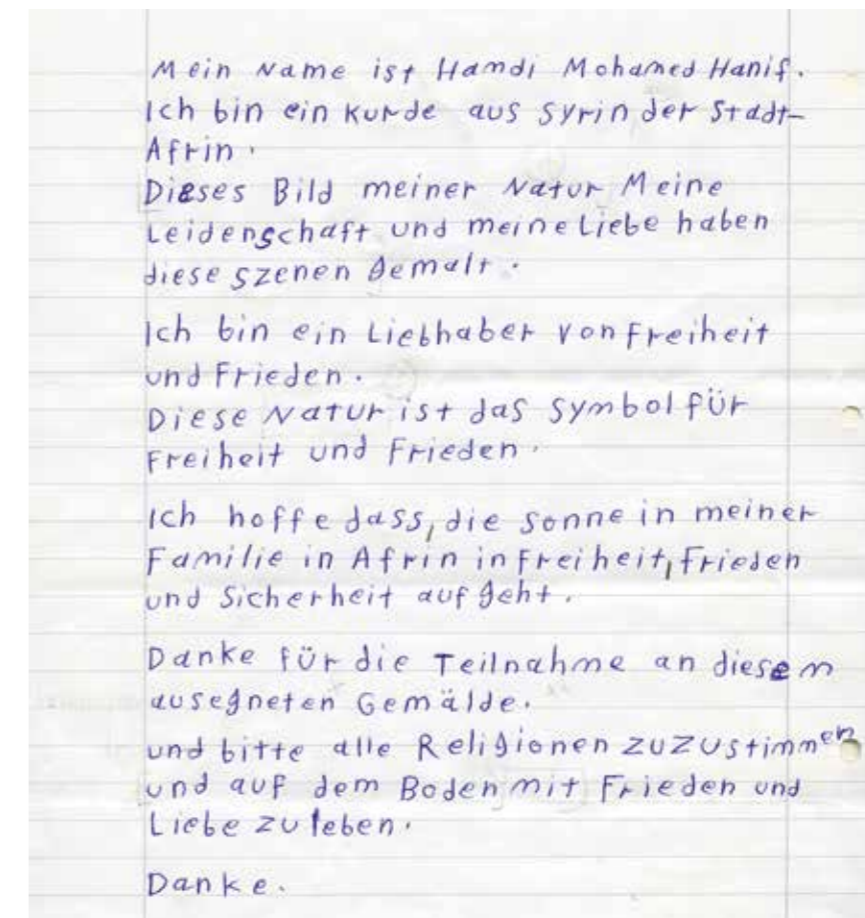 Mein Name ist Hamdi Mohamed Hanif.
Ich bin ein Kurde aus Syrin der Stadt-
Afrin.
Dieses Bild meiner Natur Meine
Leidenschaft und meine Liebe haben
diese szenen gemalt.
Ich bin ein Liebhaber von Freiheit
und Frieden.
Diese Natur ist das Symbol für
Freiheit und Frieden.
Ich hoffe dass, die sonne in meiner
Familie in Afrin in Freiheit, Frieden
und Sicherheit aufgeht.
Danke für die Teilnahme an diesem
ausegneten Gemälde.
und bitte alle Religionen zuzustimmen
und auf dem Boden mit Frieden und
Liebe zu leben.
Danke.